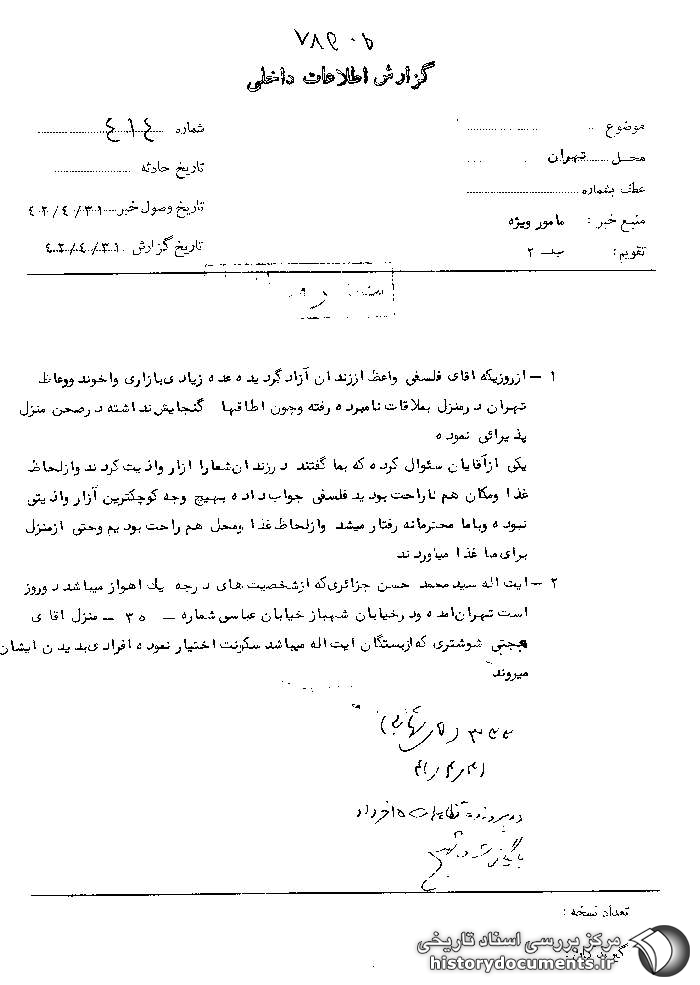 گزارش اطلاعات داخلی
موضوع
محل تهران
عطف بشماره
منبع خبر : مامور ویژه
تقویم : ب ـ ۲
شماره ٤١٤
تاریخ حادثه
تاریخ وصول خبر ٤٢/٤/٣١
تاریخ گزارش ٤٢/٤/٣١
۱ – ازروزیکه اقای فلسفی واعظ اززندان آزاد گردیده عده زیادی بازاری واخوند ووعاظ
تهران درمنزل بملاقات نامبرده رفته وچون اطاقها گنجایش نداشته درصحن منزل
پذیرائی نموده
یکی ازآقایان سئوال کرده که بما گفتند درزندان شمارا ازار واذیت کردند وازلحاظ
غذا ومکان هم ناراحت بودید فلسفی جواب داده بهیچ وجه کوچکترین آزار واذیتی
نبوده وباما محترمانه رفتار میشد وازلحاظ غذا ومحل هم راحت بودیم وحتی ازمنزل
برای ما غذا میاوردند
۲ – ایت اله سید محمد حسن جزائری که ازشخصیت های درجه یك اهواز میباشد دوروز
است تهران امده ودرخیابان شهباز خیابان عباسی شماره – ۳۵ – منزل اقای
حجتی شوشتری که ازبستگان ایت اله میباشد سکونت اختیار نموده افرادی بدیدن ایشان
میروند
در پرونده تظاهرات ۱۵ خرداد
بایگانی شود
تعداد نسخه :
مرکز بررسی اسناد تاریخی
historydocuments.ir